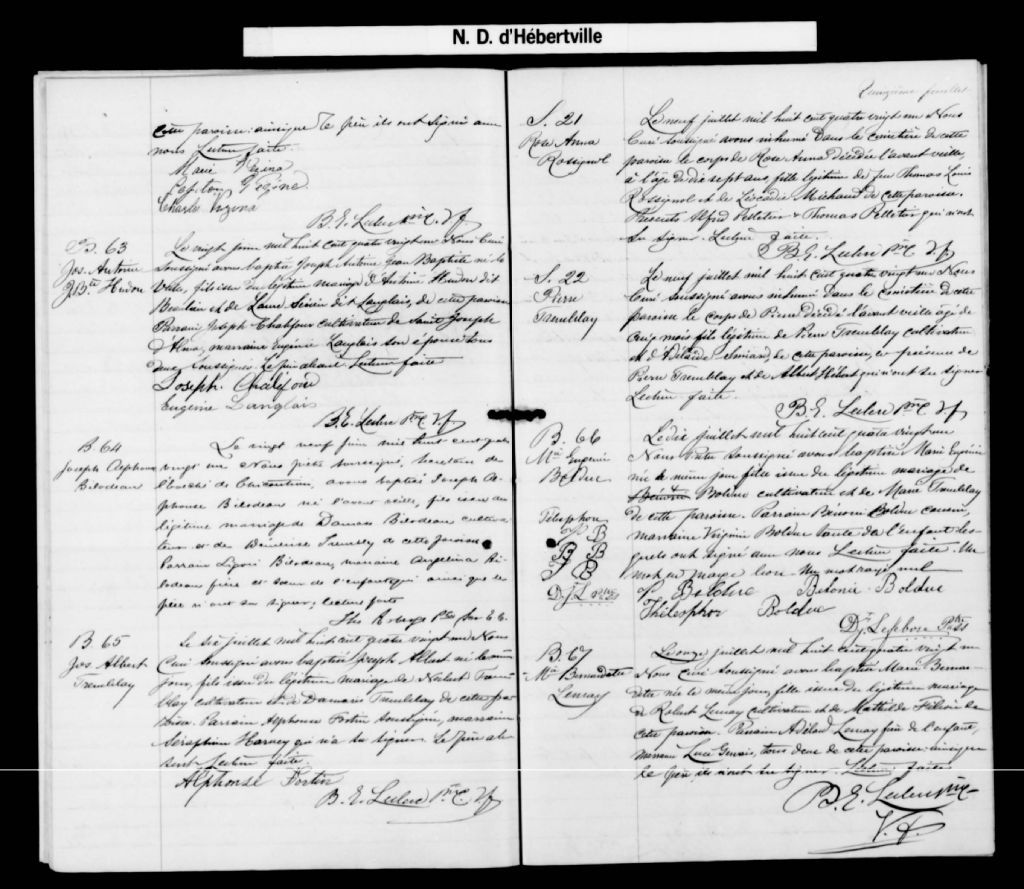 N. D. d'Hébertville
cette paroisse ainsi que le père ils ont signé avec
nous Lecture faite.
Marie Vézina
Vézina
Charle Vézina
B. E. Leclerc Ptre V.f.
B. 63
Jos. Antoine
J. Bte Hudon
Le vingt juin mil huit cent quatre vingt un Nous Curé
soussigné avons baptisé Joseph Antoine Jean Baptiste né la
veille, fils issu du légitime mariage d'Antoine Hudon dit
Beaulieu et de Laure Sénéchal dit Langlais, de cette paroisse
Parrain Joseph Chalifour cultivateur de Saint Joseph
d'Alma, marraine Eugénie Langlais son épouse tous
deux soussignés. Le père absent. Lecture faite
Joseph Chalifour
Eugénie Langlais
B. E. Leclerc Ptre V.f.
B. 64
Joseph Alphonse
Bilodeau
Le vingt neuf juin mil huit cent quatre
vingt un Nous prêtre soussigné, Secrétaire de
l'Evêché de Chicoutimi, avons baptisé Joseph Al-
phonse Bilodeau né l'avant veille, fils issu du
légitime mariage de Damas Bilodeau cultiva-
teur et de Démérise Tremblay de cette paroisse
Parrain Ligori Bilodeau, marraine Angelina Bi-
lodeau frère et soeur de l'enfant qui ainsi que le
père n'ont su signer, lecture faite
Ptre
B. 65
Jos. Albert
Tremblay
Le six juillet mil huit cent quatre vingt un Nous
Curé soussigné avons baptisé Joseph Albert né le même
jour, fils issu du légitime mariage de Norbert Trem-
blay cultivateur et de Damaris Tremblay de cette pa-
roisse. Parrain Alphonse Fortin soussigné, marraine
Séraphine Harvey qui n'a su signer. Le père ab-
sent Lecture faite.
Alphonse Fortin
B. E. Leclerc Ptre V.f.
Quinzième feuillet
S. 21
Rose Anna
Rossignol
Le neuf juillet mil huit cent quatre vingt un Nous
Curé soussigné avons inhumé dans le cimetière de cette
paroisse le corps de Rose Anna décédée l'avant veille,
à l'âge de dix sept ans, fille légitime de feu Thomas Louis
Rossignol et de Léocadie Michaud de cette paroisse.
Présents Alfred Pelletier & Thomas Pelletier qui n'ont
su signer. Lecture faite.
B. E. Leclerc Ptre V.f.
S. 22
Pierre
Tremblay
Le neuf juillet mil huit cent quatre vingt un Nous
Curé soussigné avons inhumé dans le cimetière de cette
paroisse le corps de Pierre décédé l'avant veille âgé de
cinq mois fils légitime de Pierre Tremblay cultivateur
et d'Adélaïde Simard de cette paroisse, en présence de
Pierre Tremblay et de Albert Hébert qui n'ont su signer
Lecture faite.
B. E. Leclerc Ptre V.f.
B. 66
Mie Eugénie
Bolduc
Télesphore
of B
B B
T B
D. J. L. Ptre
Le dix juillet mil huit cent quatre vingt un
Nous Prêtre soussigné avons baptisé Marie Eugénie
née le même jour fille issue du légitime mariage de
Bolduc cultivateur et de Marie Tremblay
de cette paroisse. Parrain Bénoni Bolduc cousin,
marraine Virginie Bolduc tante de l'enfant les-
quels ont signé avec nous Lecture faite. Un
mot en marge bon. Un mot rayé nul
of Bolduc Bénonie Bolduc
Thélesphor Bolduc
D. J. Lefebvre Ptre
B. 67
Mie Bernadette
Lemay
Le onze juillet mil huit cent quatre vingt un
Nous Curé soussigné avons baptisé Marie Bernar-
dette née le même jour, fille issue du légitime mariage
de Robert Lemay cultivateur et de Mathilde de
cette paroisse. Parrain Adélard Lemay frère de l'enfant,
marraine Luce Gervais, tous deux de cette paroisse ainsi que
le père ils n'ont su signer. Lecture faite
B. E. Leclerc Ptre
V. F.